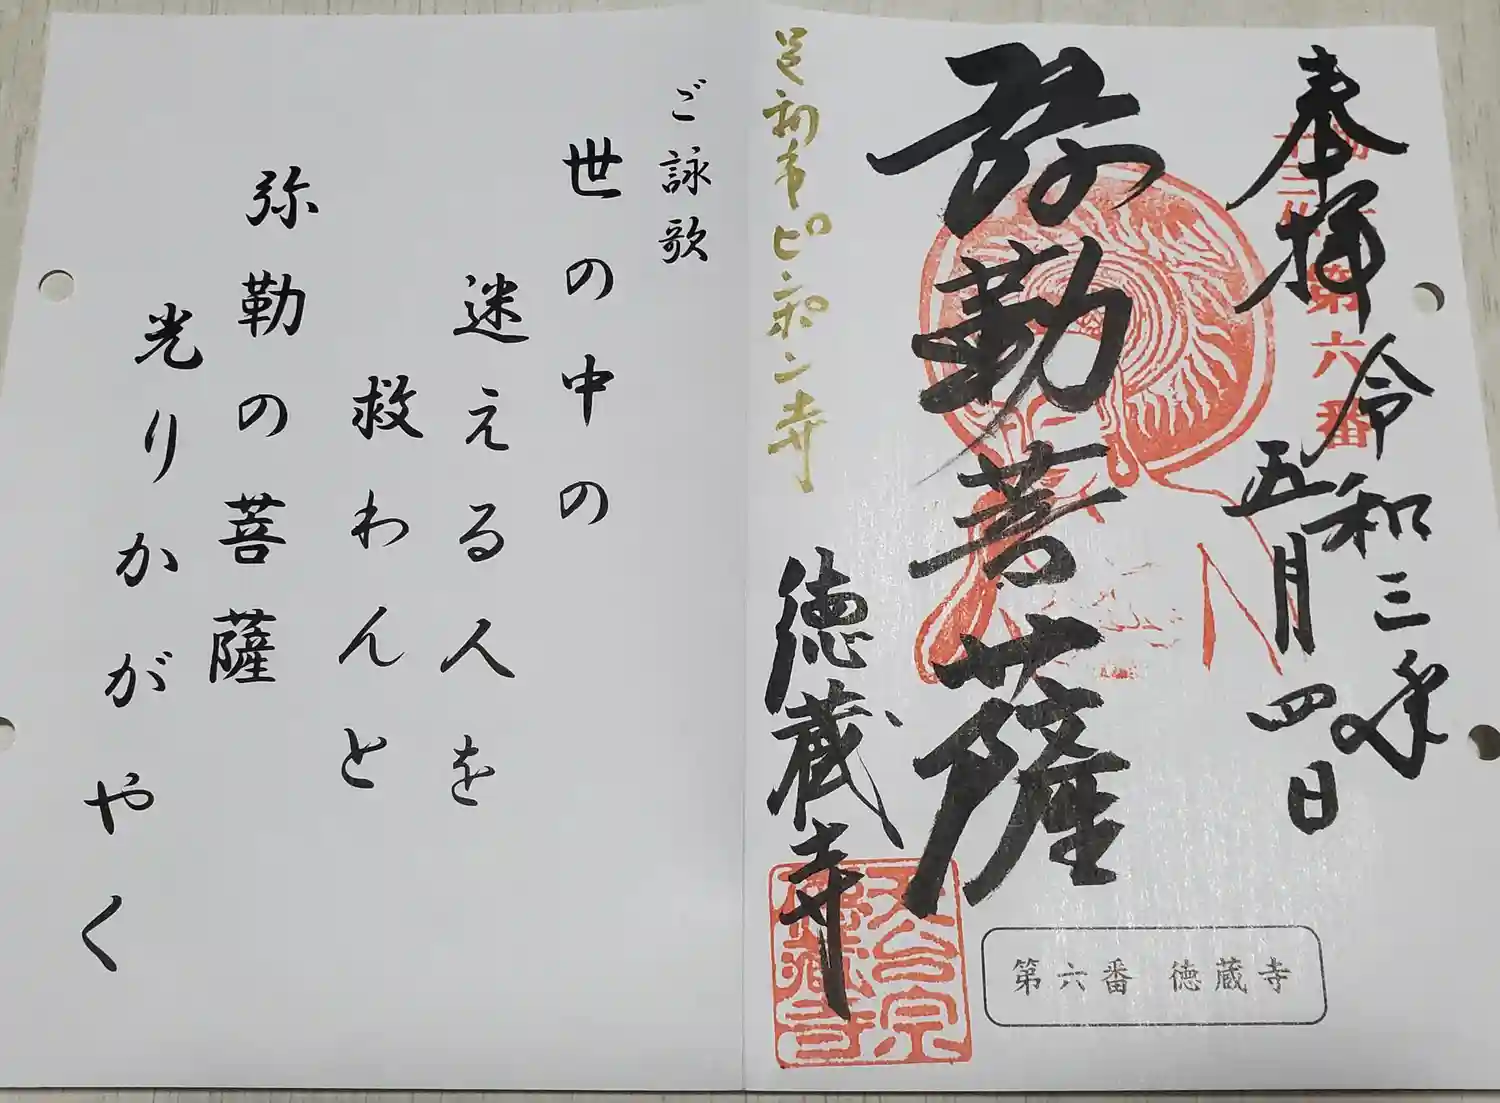 奉拝
第六番
令和三年
五月四日
弥勒菩薩
足利市ピンコロ寺
徳蔵寺
天台宗
徳蔵寺
第六番 徳蔵寺
ご詠歌
世の中の
迷える人を
救わんと
弥勒の菩薩
光りかがやく